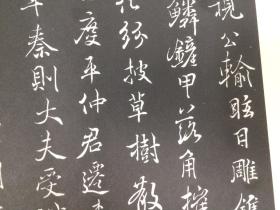 視公輸眩目雕鐫
鱗鏟甲落角摧
花紛披草樹散
度平仲君遷
年秦則大夫受